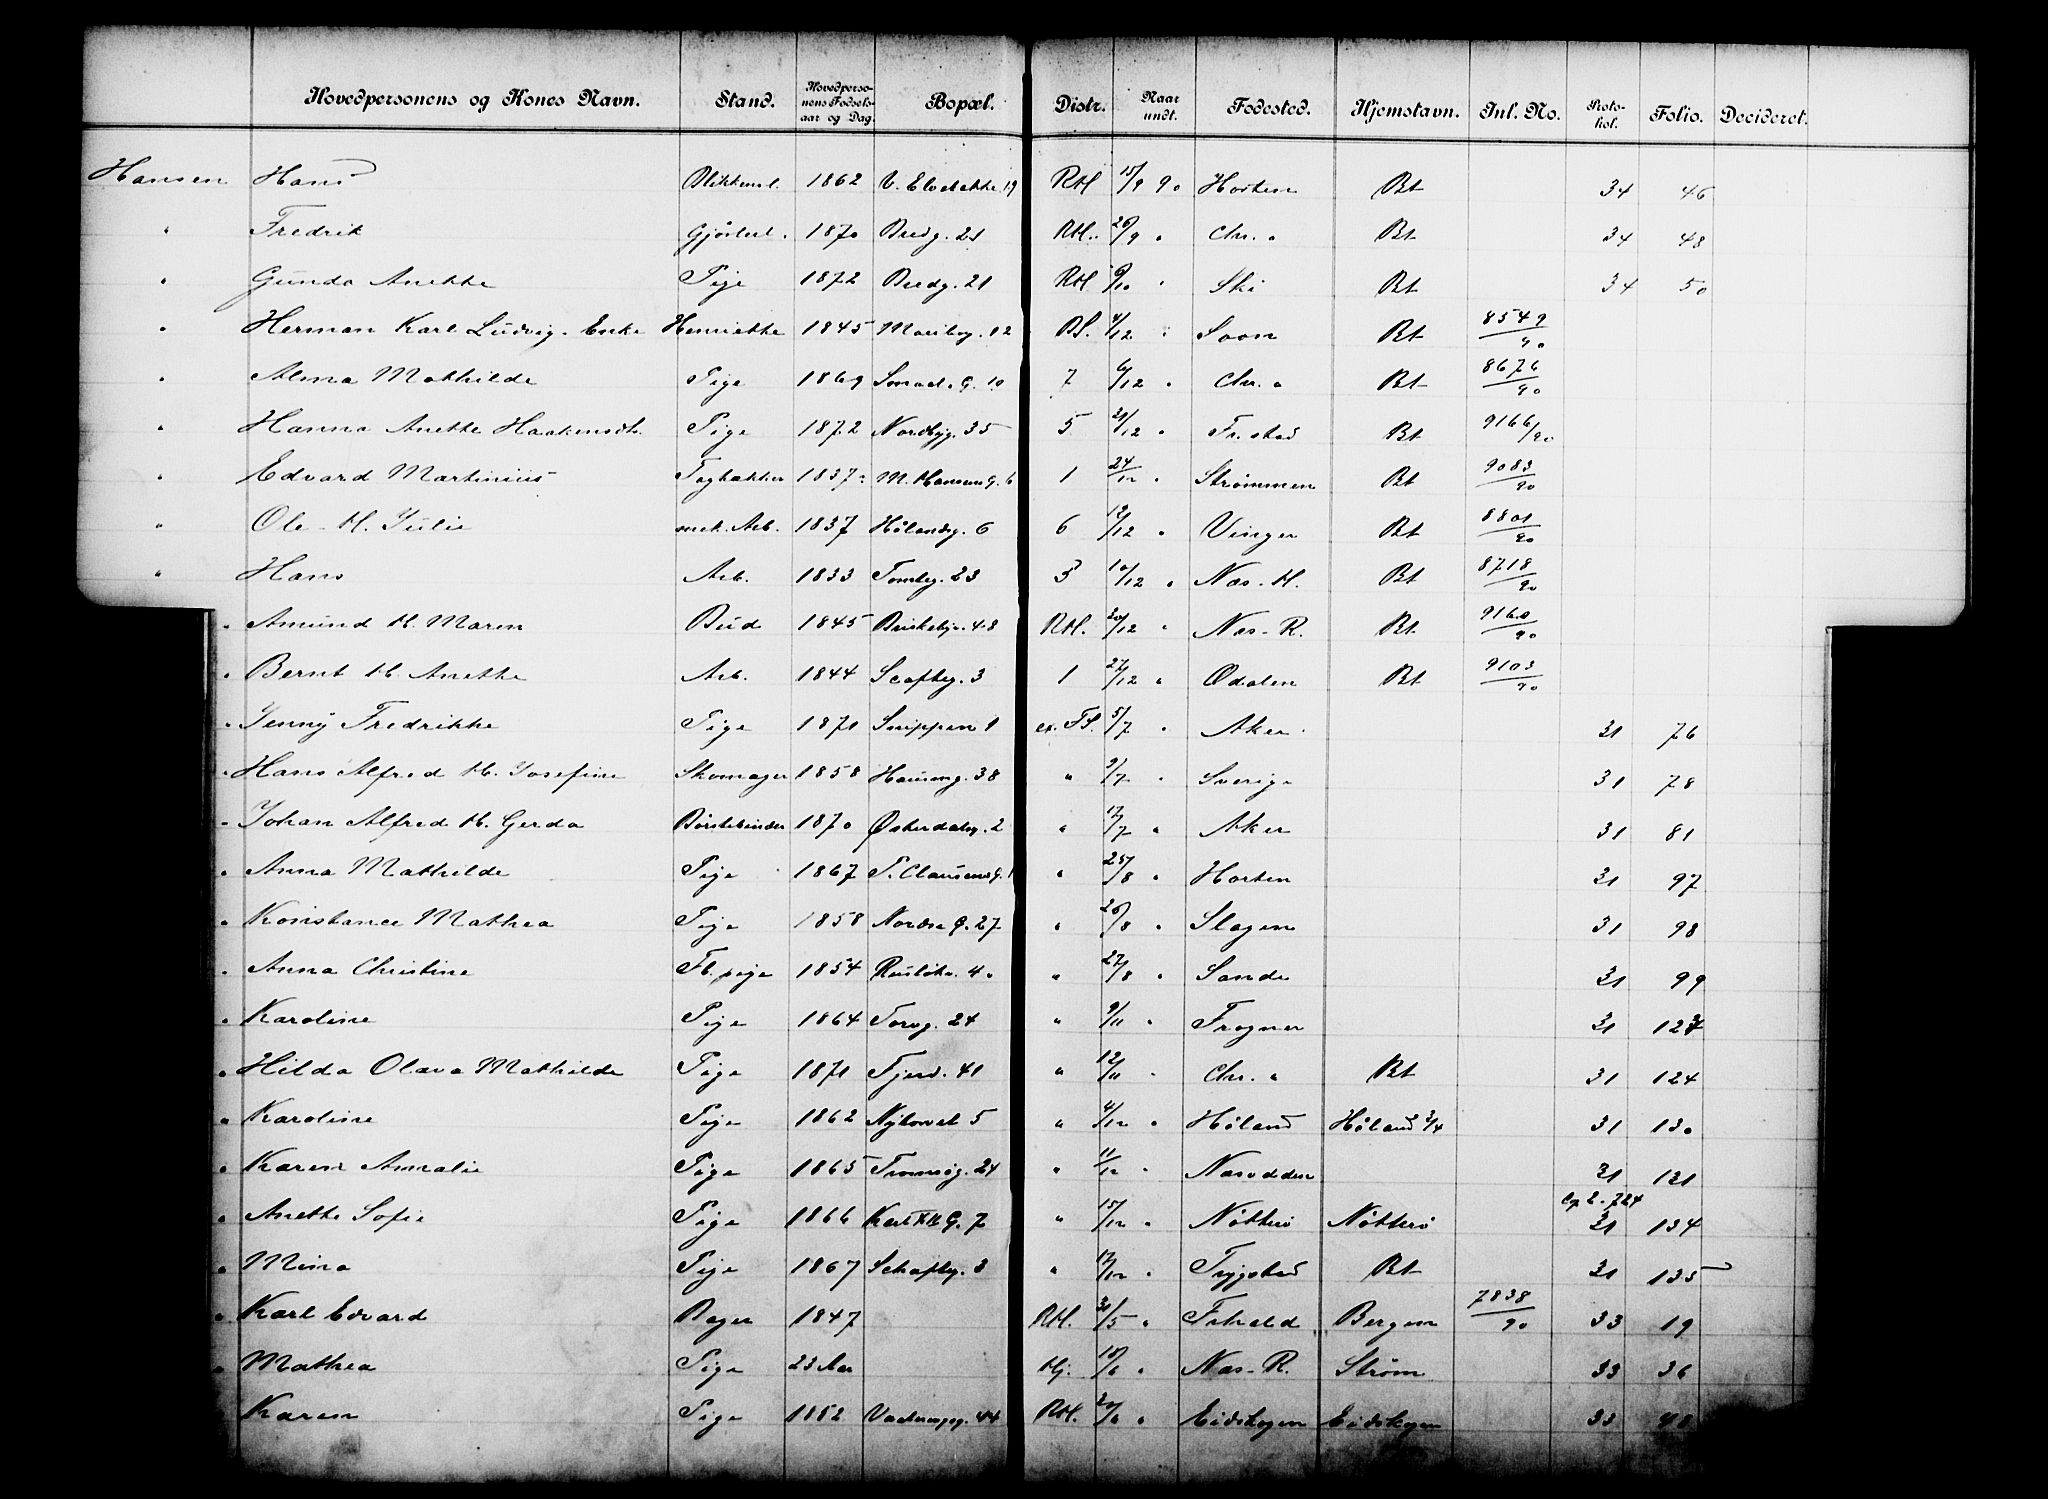 Hovedpersonens og Kones Navn. Stand. Hovedpersonens Fødselsaar og Dag. Bopæl. Distr. Naar undt. Fødested. Hjemstavn. Inl. No. Protokol. Folio. Decideret.
Hansen Hans Blikkensl. 1862 19 RM 15/9 90 Horten Bt 34 46
" Fredrik Gjørtler. 1870 Bredg. 21 RM. 26/9 " Chr. a Bt 34 48
" Gunda Anette Pige 1872 Bredg. 21 RM 6/10 " Ski Bt 34 50
" Herman Karl Ludvig. Enke Henriette 1845 Maribog. 12 4/12 " Soon Bt 8549/90
" Alma Mathilde Pige 1869 10 7 6/12 " Chr. a Bt 8676/90
" Hanna Anette Haakensdt. Pige 1872 Nordbyg. 35 5 31/12 " Fr.stad Bt 9166/90
" Edvard Martinius Tagtækker 1837 M. Hansens G. 6 1 24/12 " Strømmen Bt 9083/90
" Ole - H. Julie Arb. 1837 Hølandsg. 6 6 12/12 " Vinger Bt 8801/90
" Hans Arb. 1833 Tomteg. 23 3 10/12 " Næs - H. Bt 8718/90
" Amund H. Maren Bud 1845 Briskebyv. 48 RM. 30/12 " Næs - R. Bt 9160/90
" Bernt H. Anette Arb. 1844 Scaftsg. 3 1 27/12 " Odalen Bt 9103/90
" Jenny Fredrikke Pige 1871 Snippen 1 ex. FS. 5/7 " Aker 31 76
" Hans Alfred H. Josefine Skomager 1858 Hausmg. 38 " 9/7 " Sverige 31 78
" Johan Alfred H. Gerda Børstebinder 1870 Østerdalsg. 2 " 17/7 " Aker 31 81
" Anna Mathilde Pige 1867 T. Clausens G. 1 " 25/8 " Horten 31 97
" Konstance Mathea Pige 1858 Nordre G. 27 " 26/8 " Slagen 31 98
" Anna Christine Fb. pige 1854 Rusløkv. 40 " 27/8 " Sande 31 99
" Karoline Pige 1864 Torvg. 24 " 9/11 " Frogner 31
" Hilda Olava Mathilde Pige 1871 Fjerd. 41 " 12/11 " Chr. a Bt 31 124
" Karoline Pige 1862 Nytorvet 5 " 4/12 " Høland Høland 3/4 31 130
" Karen Amalie Pige 1865 Tromsøg. 24 " 11/12 " Næsodden 31 131
" Anette Sofie Pige 1866 Karl XII G. 7 " 15/12 " Nøtterø Nøtterø Cp 2. 724 31 134
" Mina Pige 1867 Schaftsg. 3 " 17/12 " Trygstad Bt 31 135
" Karl Edvard Bager 1847 RM. 30/5 " F.hald Bergen 7838/90 33 19
" Mathea Pige 23 Aar Hj. 18/6 " Næs - R. Strøm 33 36
" Karen Pige 1852 44 RM. 20/6 " Eidskogen Eidskogen 33 48